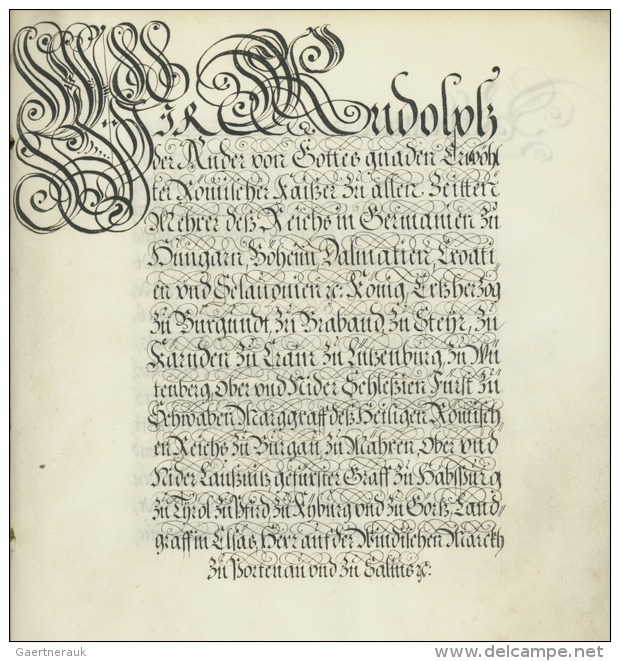 WIR Rudolph
der Ander von Gottes gnaden Erwöhl
ter Römischer Kaißer Zu allen Zeitten
Mehrer deß Reichs in Germanien Zu
Hungarn, Böheim, Dalmatien, Croati
en vnd Sclauonien ꝛc: König, Ertzherzog
Zu Burgundt, Zu Braband, Zu Steyr, Zu
Kärnden Zu Crain Zu Lützenburg, Zu Wür
tenberg, Ober vnd Nider Schleßien Fürst Zu
Schwaben Marggraff deß Heiligen Römisch
en Reichs Zu Burgau Zu Mähren, Ober vnd
Nider Laußnütz gefürster Graff Zu Habsburg
Zu Tyrol Zu Pfird Zu Kyburg vnd Zu Görtz, Land-
graff in Elsas Herr auf der Windischen Marckh
Zu Portenau vnd Zu Salins ꝛc:
Gaertnerauk
www.delcampe.net